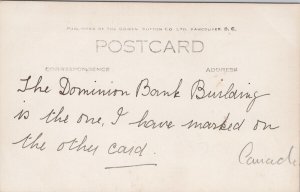 PUBLISHED BY THE GOWEN, SUTTON CO. LTD., VANCOUVER, B.C.
POSTCARD
CORRESPONDENCE ADDRESS
The Dominion Bank Building
is the one, I have marked on
the other card.
Canada